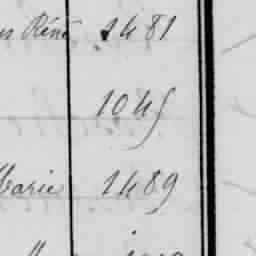 René 1481
1045
Marie 1489